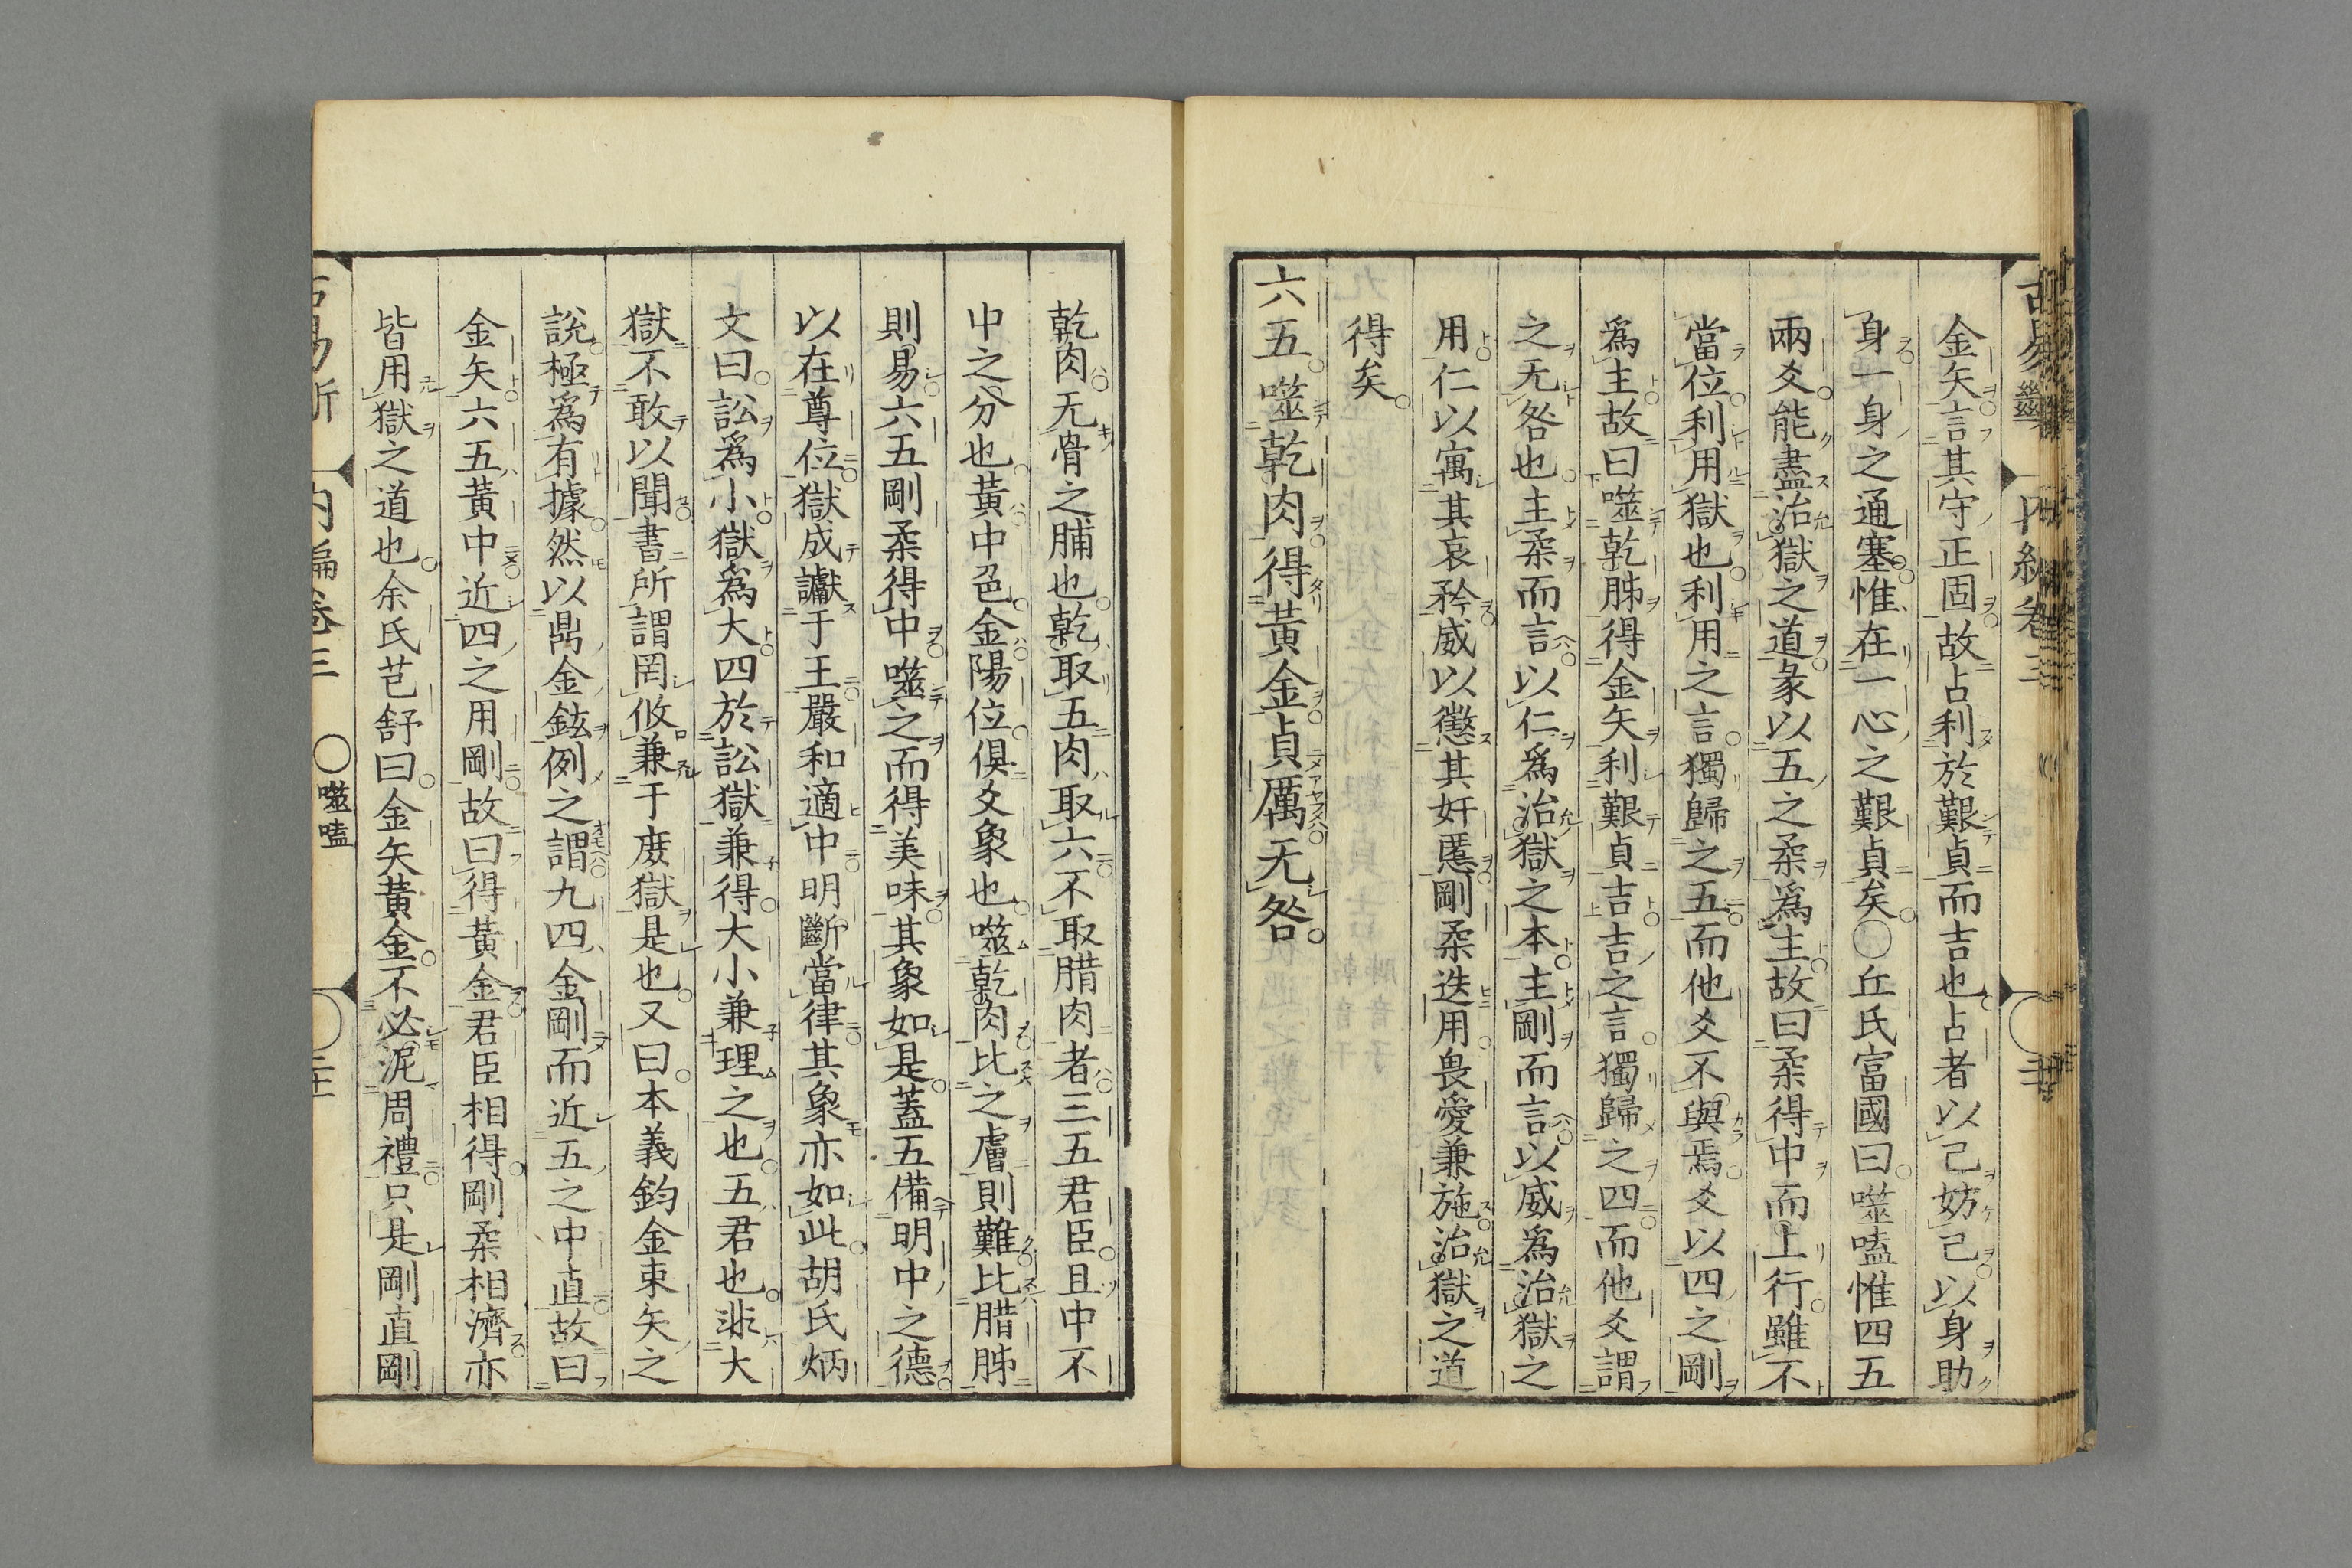 金矢言其守正固故占利於艱貞而吉也占者以己妨己以身助
身一身之通塞惟在一心之艱貞矣○丘氏富國曰噬嗑惟四五
兩爻能盡治獄之道彖以五之柔爲主故曰柔得中而上行雖不
當位利用獄也利用之言獨歸之五而他爻不與焉爻以四之剛
爲主故曰噬乾胏得金矢利艱貞吉吉之言獨歸之四而他爻謂
之无咎也主柔而言以仁爲治獄之本主剛而言以威爲治獄之
用仁以寓其哀矜威以懲其奸慝剛柔迭用畏愛兼施治獄之道
得矣
六五噬乾肉得黃金貞厲无咎
乾肉无骨之脯也乾取五肉取六不取腊肉者三五君臣且中不
中之分也黃中色金陽位俱爻象也噬乾肉比之膚則難比腊胏
則易六五剛柔得中噬之而得美味其象如是蓋五備明中之德
以在尊位獄成讞于王嚴和適中明斷當律其象亦如此胡氏炳
文曰訟爲小獄爲大四於訟獄兼得大小兼理之也五君也非大
獄不敢以聞書所謂罔攸兼于庶獄是也又曰本義鈞金束矢之
說極爲有據然以鼎金鉉例之謂九四金剛而近五之中直故曰
金矢六五黃中近四之用剛故曰得黃金君臣相得剛柔相濟亦
皆用獄之道也余氏芑舒曰金矢黃金不必泥周禮只是剛直剛
内編卷三 ○噬嗑